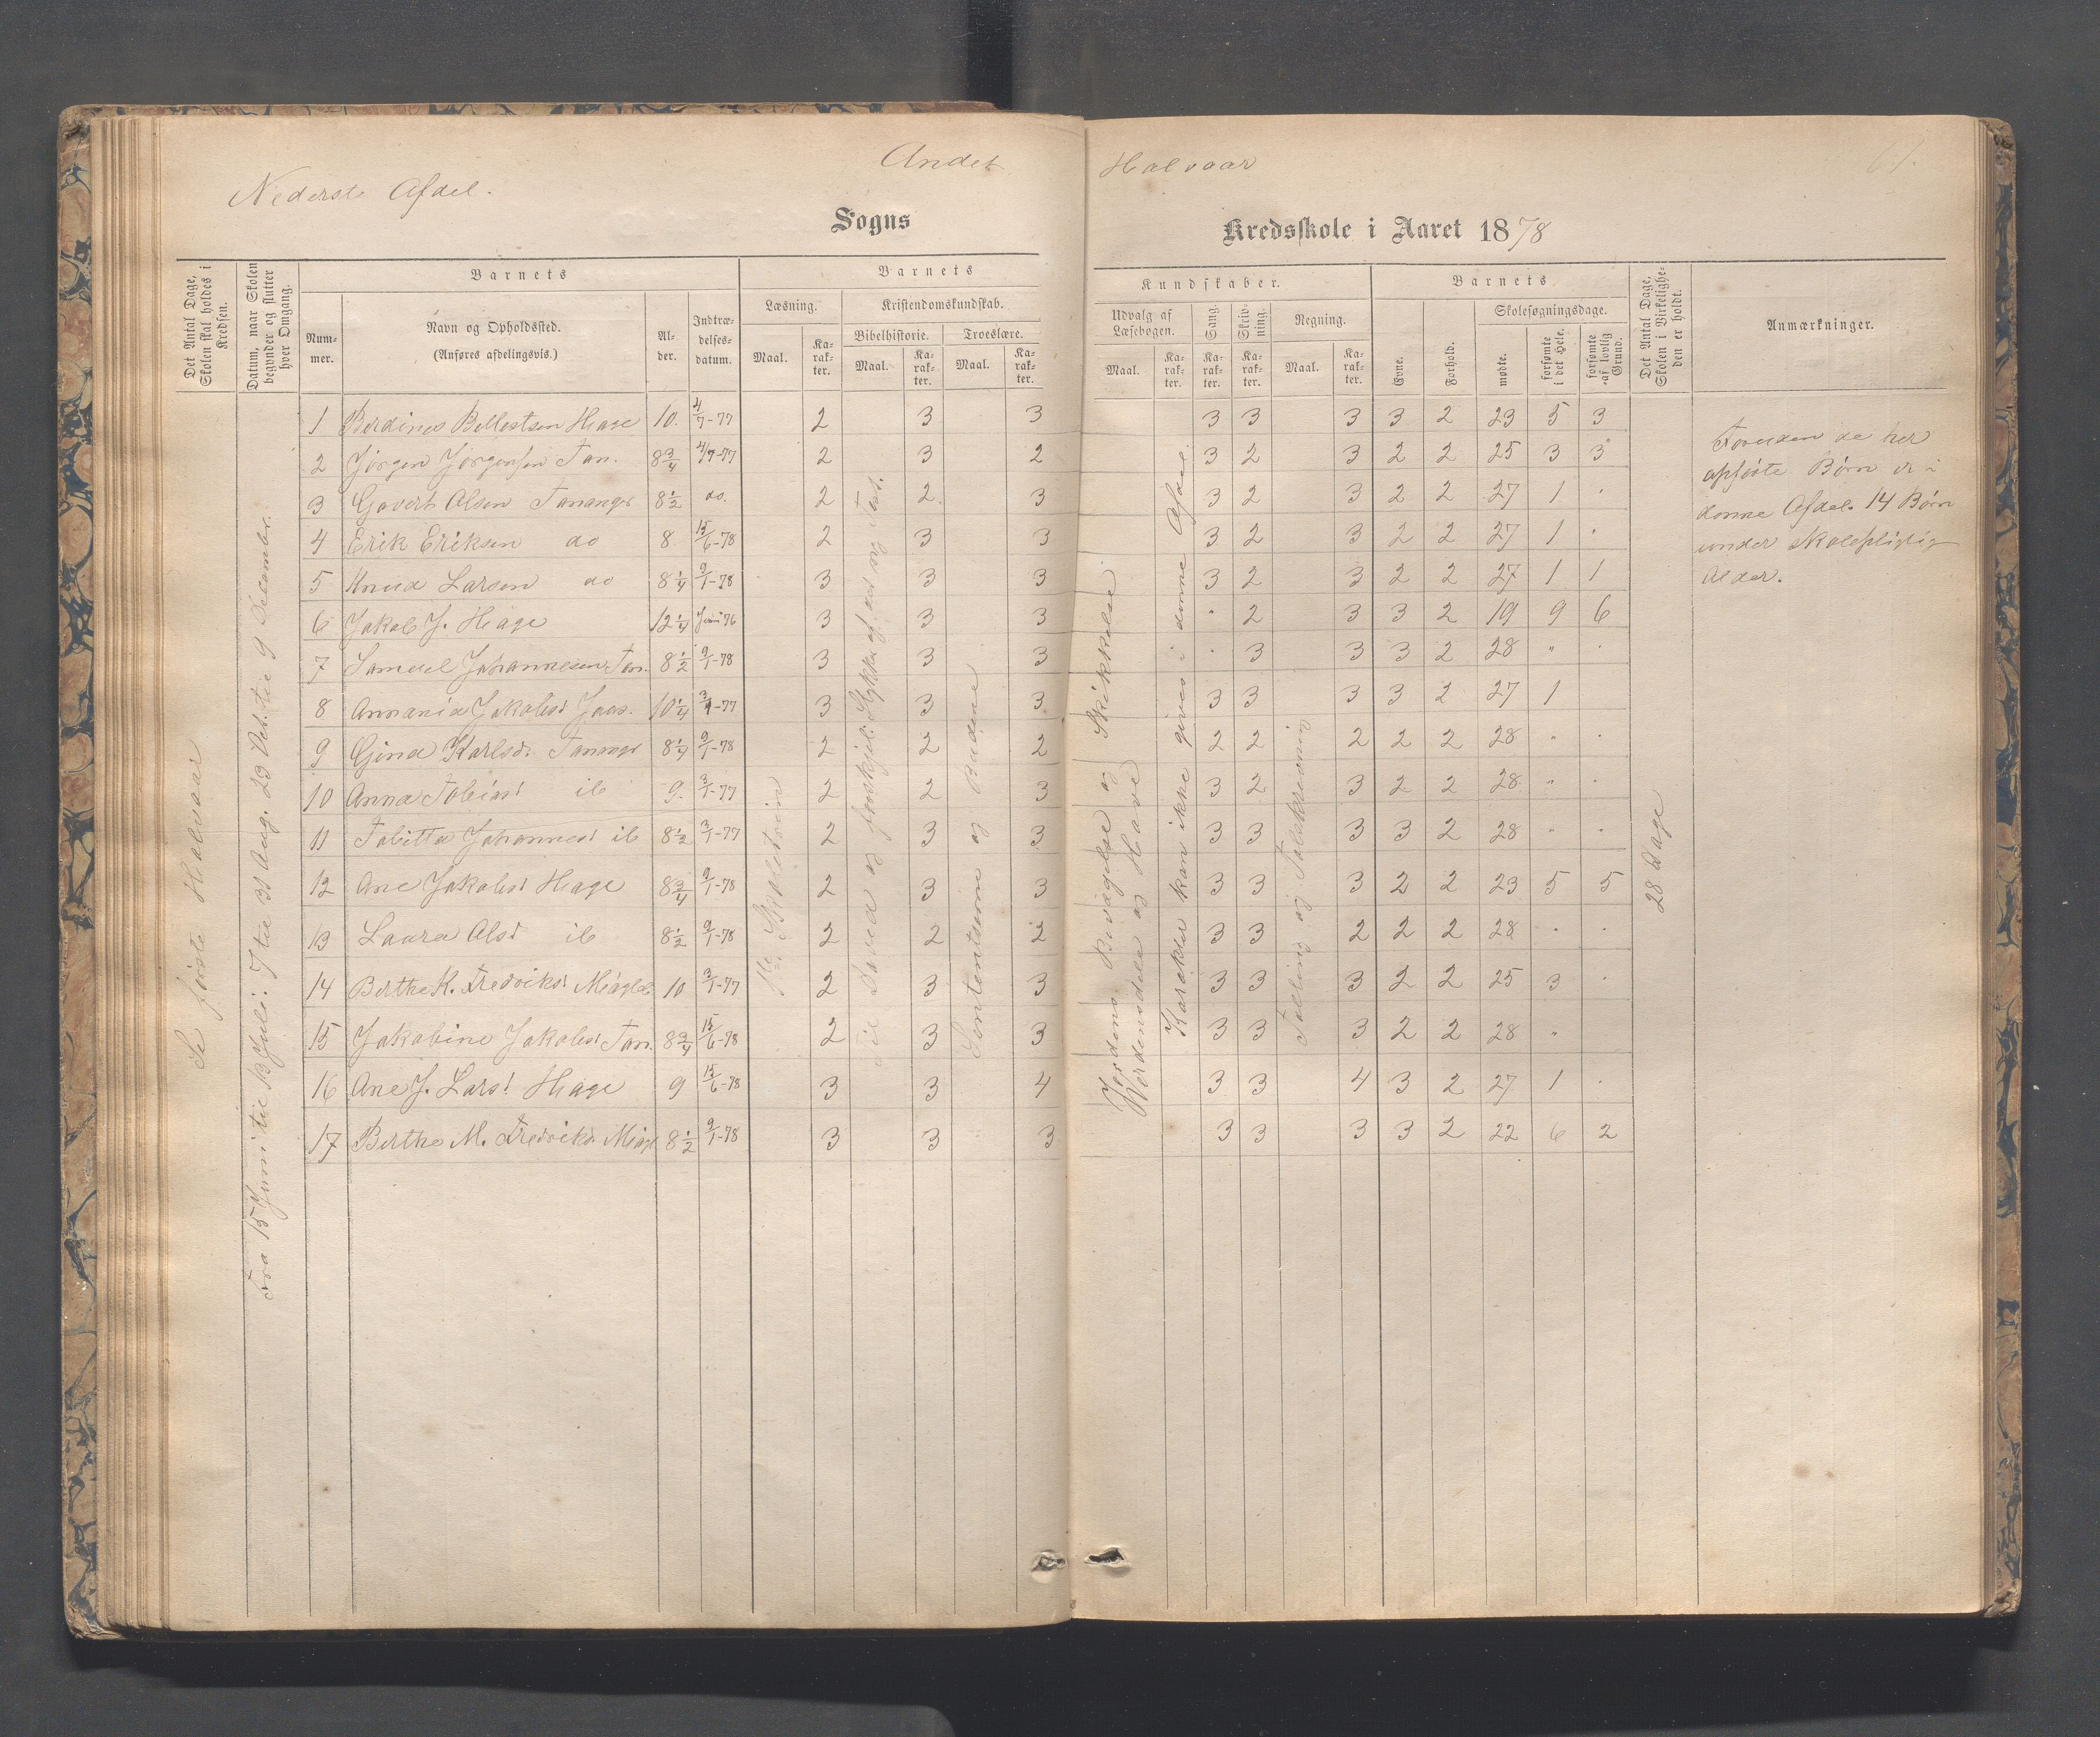 Andet Halvaar
Nederste Afdel.
Sogns Kredsskole i Aaret 1878
Det Antal Dage, Skolen skal holdes i Kredsen.
Datum, naar Skolen begynder og slutter hver Omgang.
Barnets
Nummer.
Navn og Opholdssted.
(Anføres afdelingsvis.)
Alder.
Indtrædelsesdatum.
Barnets Kundskaber.
Læsning.
Maal. Karakter.
Kristendomskundskab.
Bibelhistorie. Troeslære.
Maal. Karakter. Maal. Karakter.
Udvalg af Læsebogen.
Maal. Karakter.
Sang. Karakter.
Skrivning. Karakter.
Regning.
Maal. Karakter.
Barnets
Evne. Forhold.
Skolesøgningsdage.
mødte. forsømte i det Hele. forsømte af lovlig Grund.
Det Antal Dage, Skolen i Virkeligheden er holdt.
Anmærkninger.
Se første Halvaar
Fra 15 Juni til 13 Juli. 7 til 31 Aug. 29 Oct. til 9 December.
1 Berdines Hage 10. 4/7-77 2 3 3 3 3 3 3 2 23 5 3
2 Jørgen Jørgensen Tan. 8 3/4 4/7-77 2 3 2 3 2 3 2 2 25 3 3
3 Govert Olsen Tananger 8 1/2 do. 2 2 3 3 2 3 2 2 27 1 .
4 Erik Eriksen do 8 15/6-78 2 3 3 3 2 3 2 2 27 1 .
5 Knud Larsen do 8 1/4 9/1-78 3 3 3 3 2 3 2 2 27 1 1
6 Jakob J. Hage 12 1/4 Juni 76 3 3 3 " 2 3 3 2 19 9 6
7 Samuel Johannesen Tan. 8 1/2 9/1-78 3 3 3 . 3 3 3 2 28 " .
8 Annania Jakobsd 10 1/4 3/1-77 3 3 3 3 3 3 3 2 27 1
9 Gina Karlsd. Tananger 8 1/4 9/1-78 2 2 2 2 2 2 2 2 28 " .
10 Anna Tobiasd ib 9. 3/1-77 2 2 3 3 2 3 2 2 28 " .
11 Tabitta Johannesd ib 8 1/2 3/1-77 2 3 3 3 3 3 3 2 28 " .
12 Ane Jakobsd Hage 8 3/4 9/1-78 2 3 3 3 3 3 2 2 23 5 5
13 Laura Olsd ib 8 1/2 9/1-78 2 2 2 3 3 2 2 2 28 . .
14 Berthe K. Fredriksd 10 3/1-77 2 3 3 3 3 3 2 2 25 3 .
15 Jakobine Jakobsd Tan. 8 3/4 15/6-78 2 3 3 3 3 3 2 2 28 "
16 Ane J. Larsd Hage 9 15/6-78 3 3 4 3 3 4 3 2 27 1 .
17 Berthe M. Fredriksd. 8 1/2 9/1-78 3 3 3 3 3 3 3 2 22 6 2
Til David og forskjel. Stykker af
og Budene
Jordens Bevægelse og Skikkelse
Verdensdele og Have
Karakter kan ikke gives i denne Afdel.
Tælling og Talskrivning
28 Dage
Foruden de her
opførte Børn er i
denne Afdel. 14 Børn
under skolepligtig
Alder.